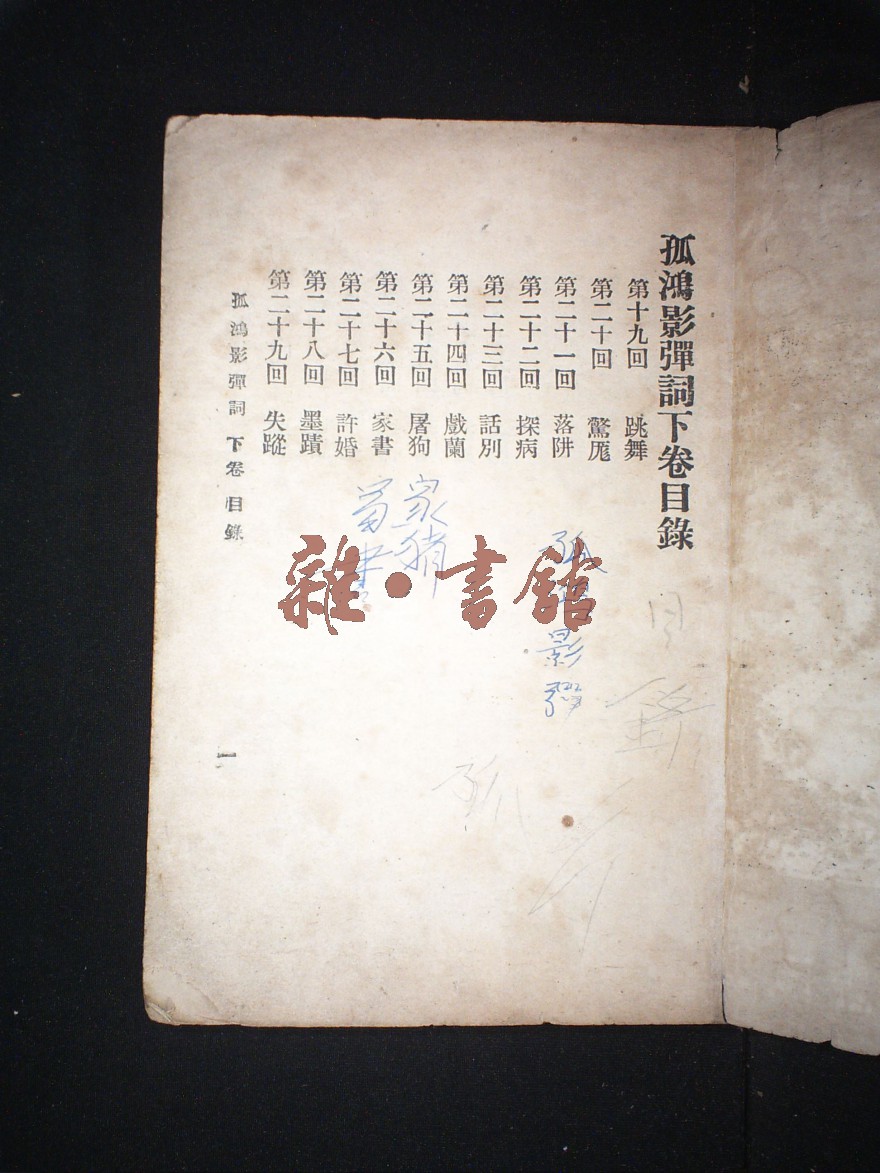 孤鴻影彈詞下卷目錄
第十九回 跳舞
第二十回 驚厖
第二十一回 落阱
第二十二回 探病
第二十三回 話別
第二十四回 戲蘭
第二十五回 屠狗
第二十六回 家書
第二十七回 許婚
第二十八回 墨蹟
第二十九回 失蹤
孤鴻影彈詞 下卷 目錄
一
孤鴻影彈
目
孤
雜·書館